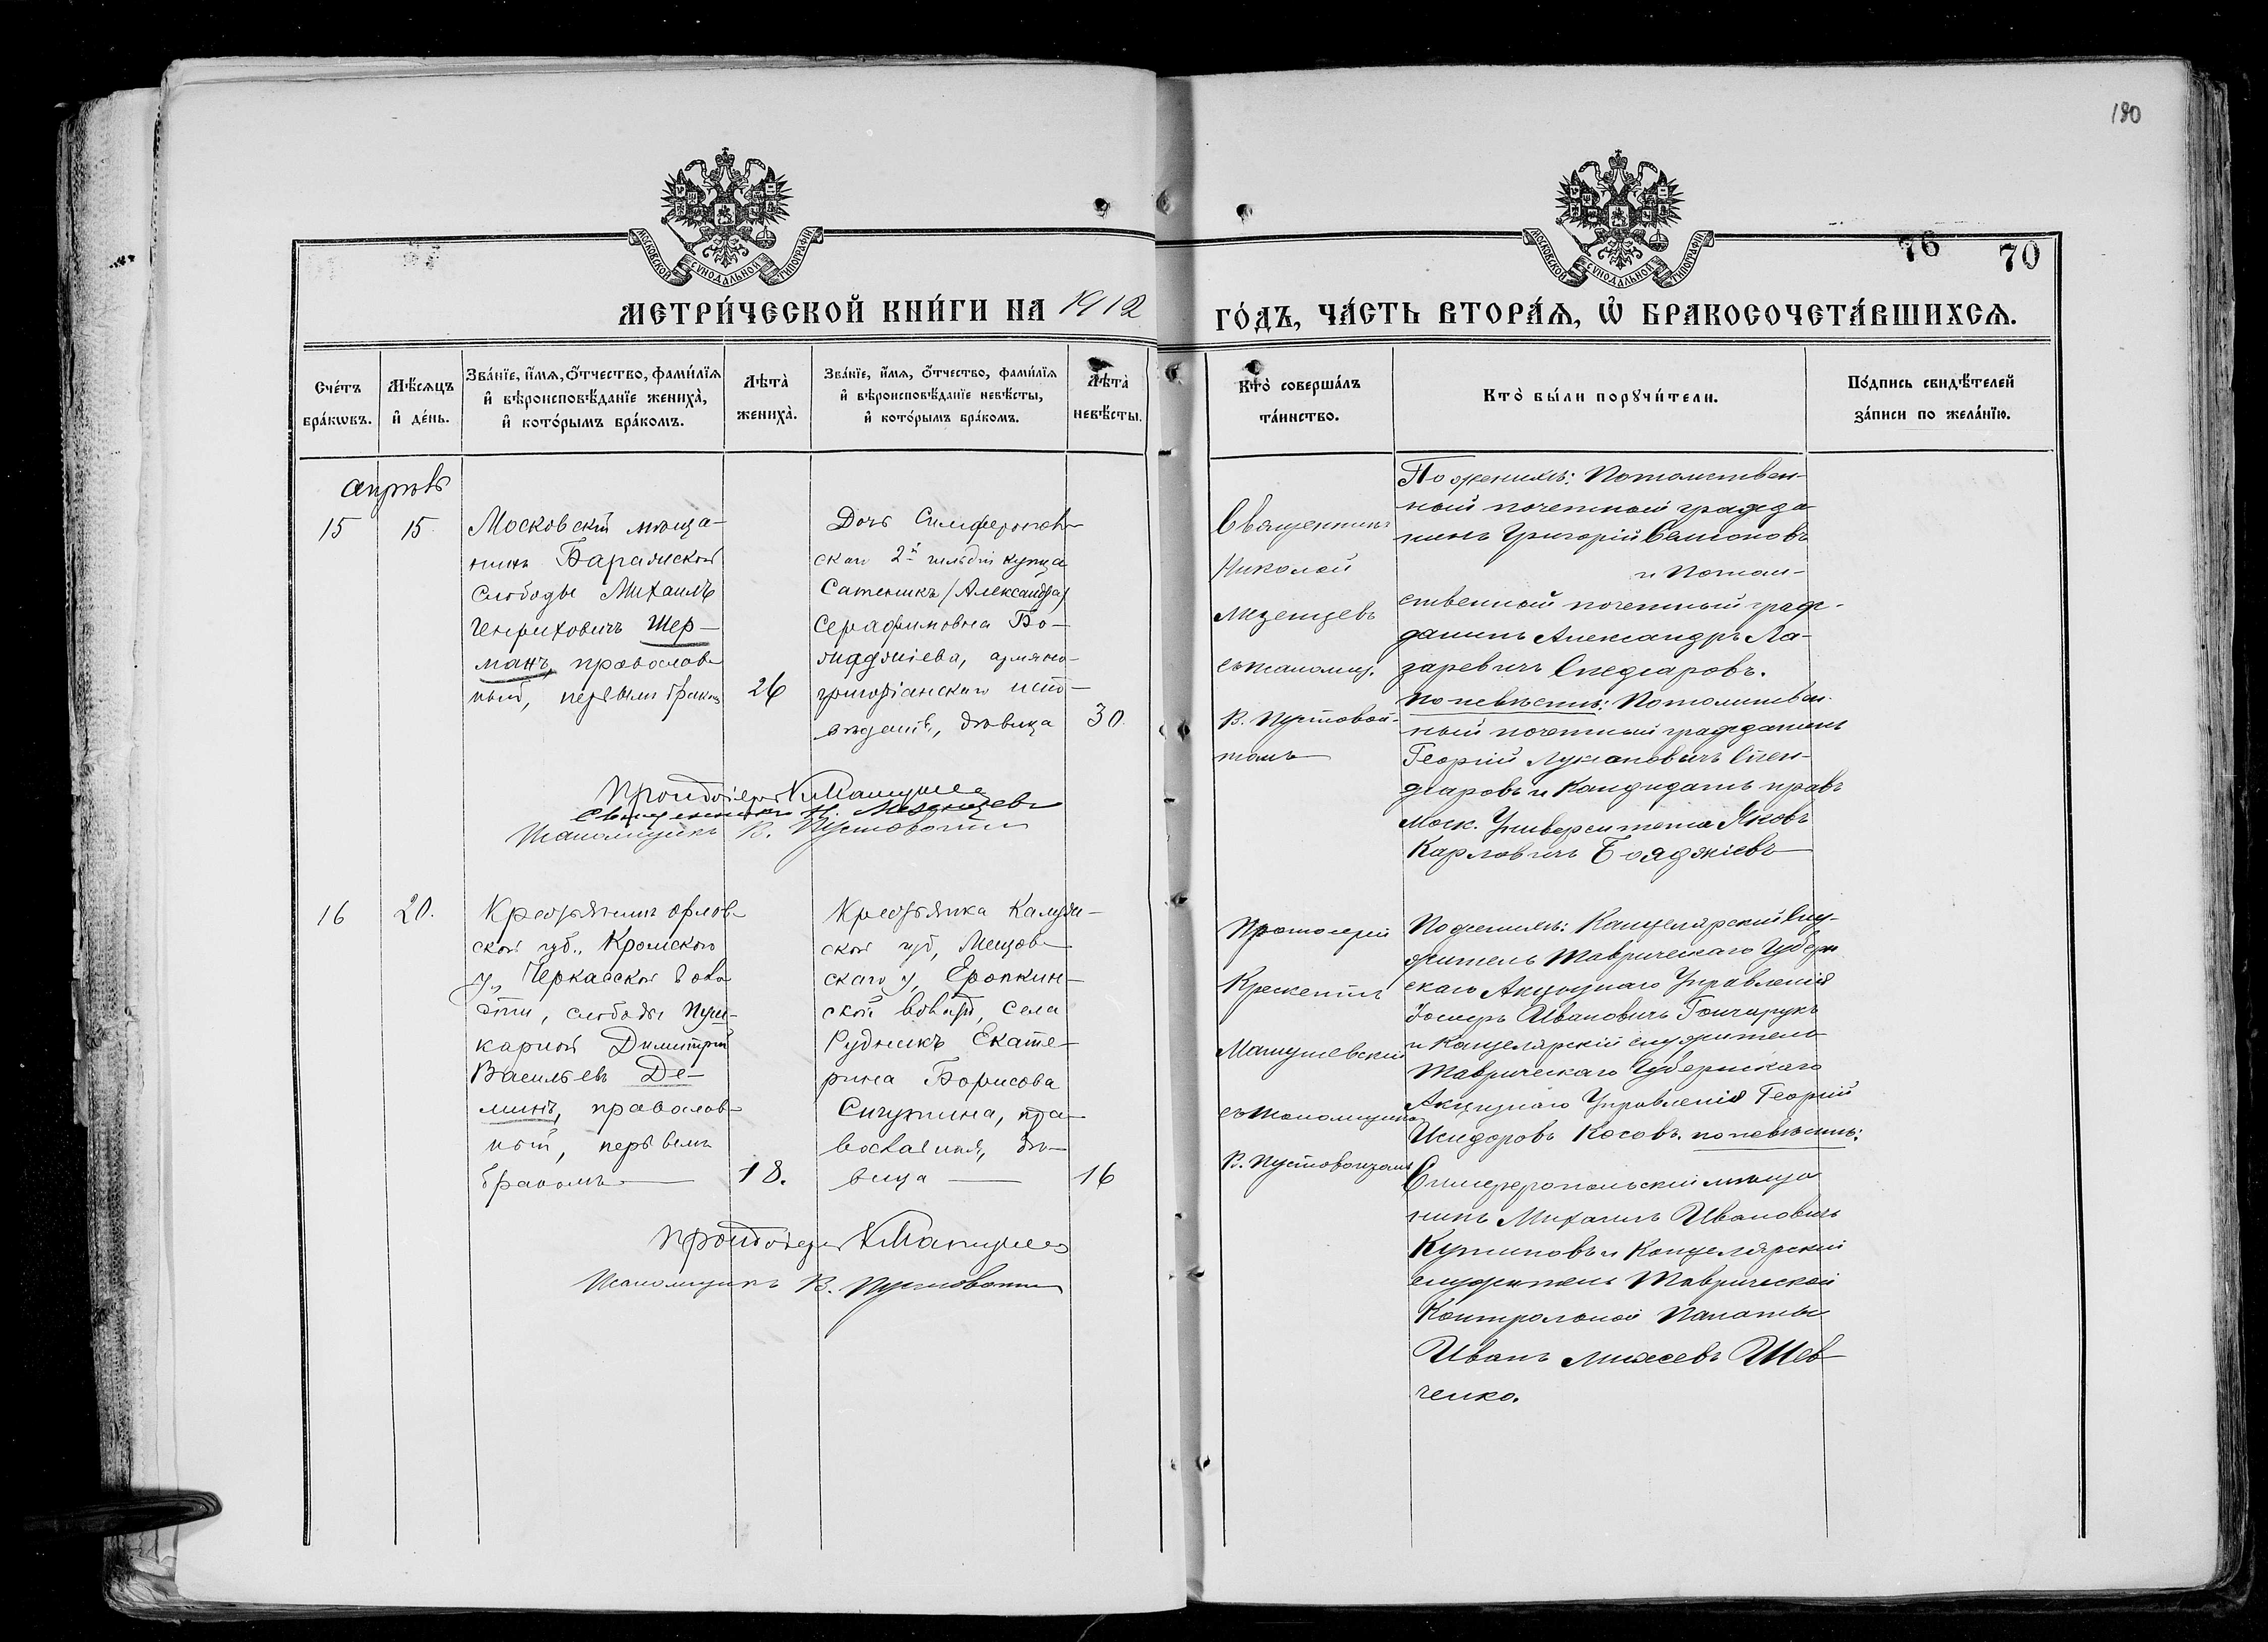 190
76 70
МОСКОВСКОЙ СѴНОДАЛЬНОЙ ТИПОГРАФІИ
МОСКОВСКОЙ СѴНОДАЛЬНОЙ ТИПОГРАФІИ
МЕТРИ́ЧЕСКОЙ КНИ́ГИ НА 1912
ГО́ДЪ, ЧА́СТЬ ВТОРА́Ѧ, Ѡ҆ БРАКОСОЧЕТА́ВШИХСѦ.
Сче́тъ
бра́кѡвъ.
Мѣ́сяцъ
и҆ де́нь.
Зва́нїе, и҆́мѧ, ѻ҆́тчество, фами́лїѧ
и҆ вѣроисповѣ́данїе жениха̀,
и҆ кото́рымъ бра́комъ.
Лѣта̀
жениха̀.
Зва́нїе, и҆́мѧ, ѻ҆́тчество, фами́лїѧ
и҆ вѣроисповѣ́данїе невѣ́сты,
и҆ кото́рымъ бра́комъ.
Лѣта̀
невѣ́сты.
Кто̀ соверша́лъ
та́инство.
Кто̀ бы́ли порꙋчи́тели.
По́дпись свидѣ́телей
за́писи по жела́нїю.
апрѣль
15
15
Московскій мѣща-
нинъ Барашской
слободы Михаилъ
Генриховичъ Шер-
манъ, православ-
ный, первымъ бракомъ
26
Дочь Симферополь-
скаго 2й гильдіи купца
Сатеникъ (Александра)
Серафимовна Бо-
яджіева, армяно-
григоріанскаго испо-
вѣданія, дѣвица
30.
Священникъ
Николай
Мезенцевъ
съ псаломщ.
В. Пустовой-
томъ
По женихѣ: Потомствен-
ный почетный гражда-
нинъ Григорій Семеновъ
и Потом-
ственный почетный граж-
данинъ Александръ Ла-
заревичъ Спендіаровъ.
По невѣстѣ: Потомствен-
ный почетный гражданинъ
Георгій Лукановичъ Спен-
діаровъ и Кандидатъ правъ
Моск. Университета Яковъ
Карловичъ Бояджіевъ
Протоіерей К Мащушев
Священникъ Н. Мезенцевъ
Псаломщикъ В. Пустовойтъ
16
20.
Крестьянинъ Орлов-
ской губ., Кромскаго
у., Черкасской воло-
сти, слободы Пуш-
карной Димитрій
Васильевъ Де-
минъ, православ-
ный, первымъ
бракомъ
18.
Крестьянка Калуж-
ской губ, Мещов-
скаго у, Еропкин-
ской волости, села
Рудникъ Екате-
рина Борисова
Сичугина, пра-
вославная, дѣ-
вица
16
Протоіерей
Крескентій
съ псаломщикомъ
В. Пустовойтомъ
По женихѣ: Канцелярскій Слу-
житель Таврическаго Губерн-
скаго Акцизнаго Управленія
Іосифъ Ивановичъ Гончарукъ
и Канцелярскій служитель
Таврическаго Губернскаго
Акцизнаго Управленія Георгій
Исидоровъ Косовъ. по невѣстѣ:
Симферопольскій мѣща-
нинъ Михаилъ Ивановичъ
и Канцелярскій
служитель Таврической
Контрольной Палаты
Иванъ Моисеевъ Шев-
ченко.
Протоіерей К Мащушев
Псаломщикъ В. Пустовойтъ